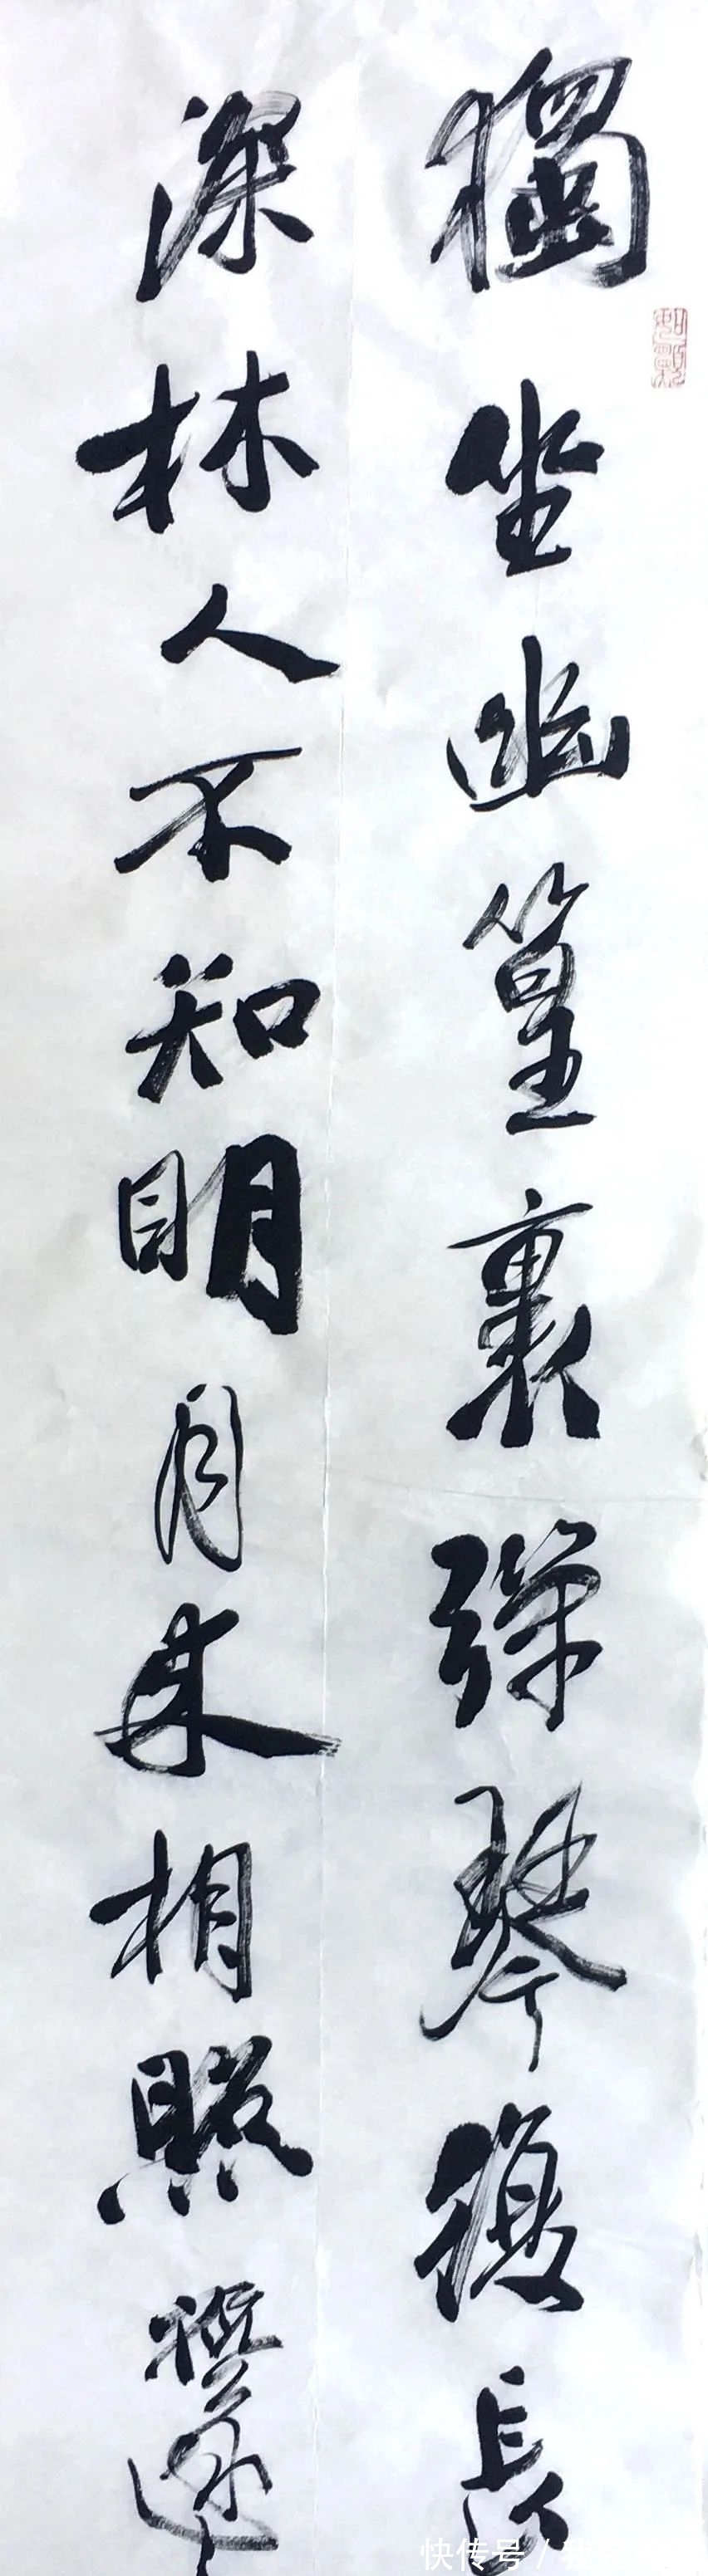 獨坐幽篁裏彈琴復長
深林人不知明月来相照
快传号/我